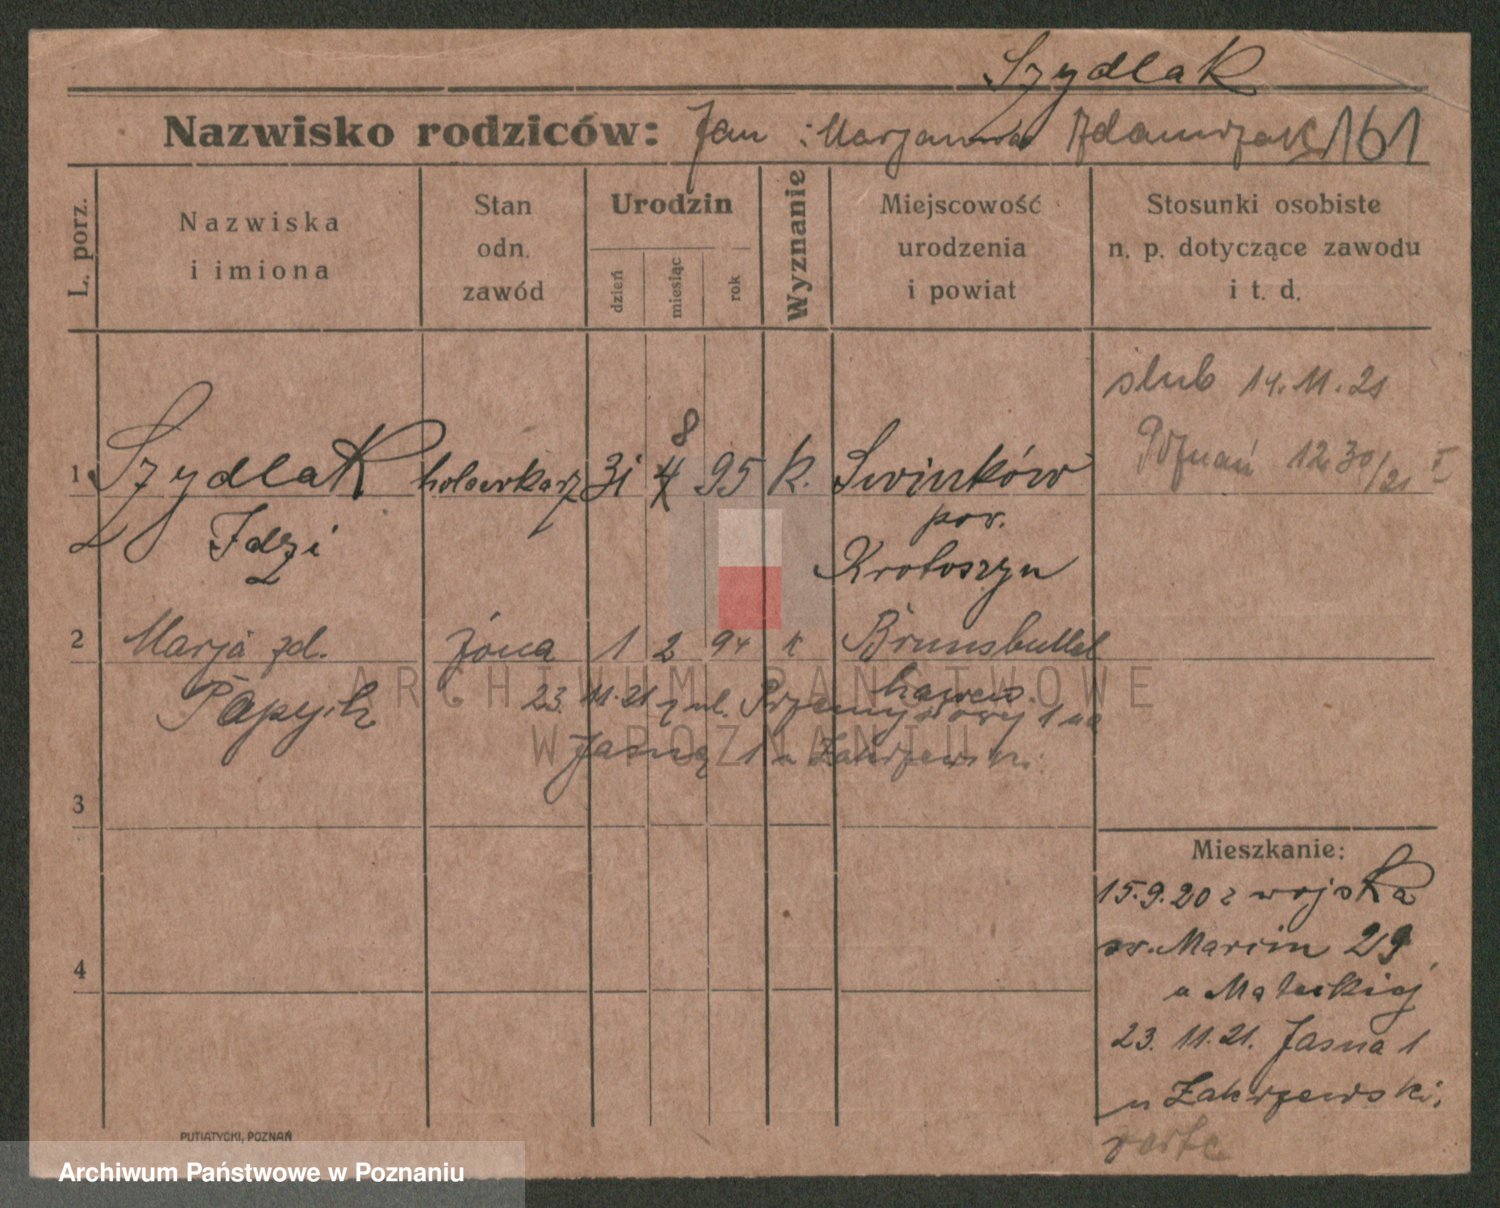 Szydlak
Nazwisko rodziców: Jan i Marjanna Adamczak 161
L. porz.
Nazwiska
i imiona
Stan
odn.
zawód
Urodzin
dzień
miesiąc
rok
Wyznanie
Miejscowość
urodzenia
i powiat
Stosunki osobiste
n. p. dotyczące zawodu
i t. d.
ślub 14.11.21
Poznań 1230/21 I
8
1 Szydlak 31 4 95 k. Swinków
Idzi
pow.
Krotoszyn
2 Marja zd. żona 1 2 94 k Brunsbuttel
Papych
hawen.
23. 11.21 z ul. Przemysłowy 1 na
Jasną 1 u Zakrzewsk.
3
4
Mieszkanie:
15.9.20 z wojska
św. Marcin 29
u Małeckiej
23. 11. 21. Jasna 1
u Zakrzewski.
verte
PUTIATYCKI, POZNAŃ
ARCHIWUM PAŃSTWOWE
W POZNANIU
Archiwum Państwowe w Poznaniu